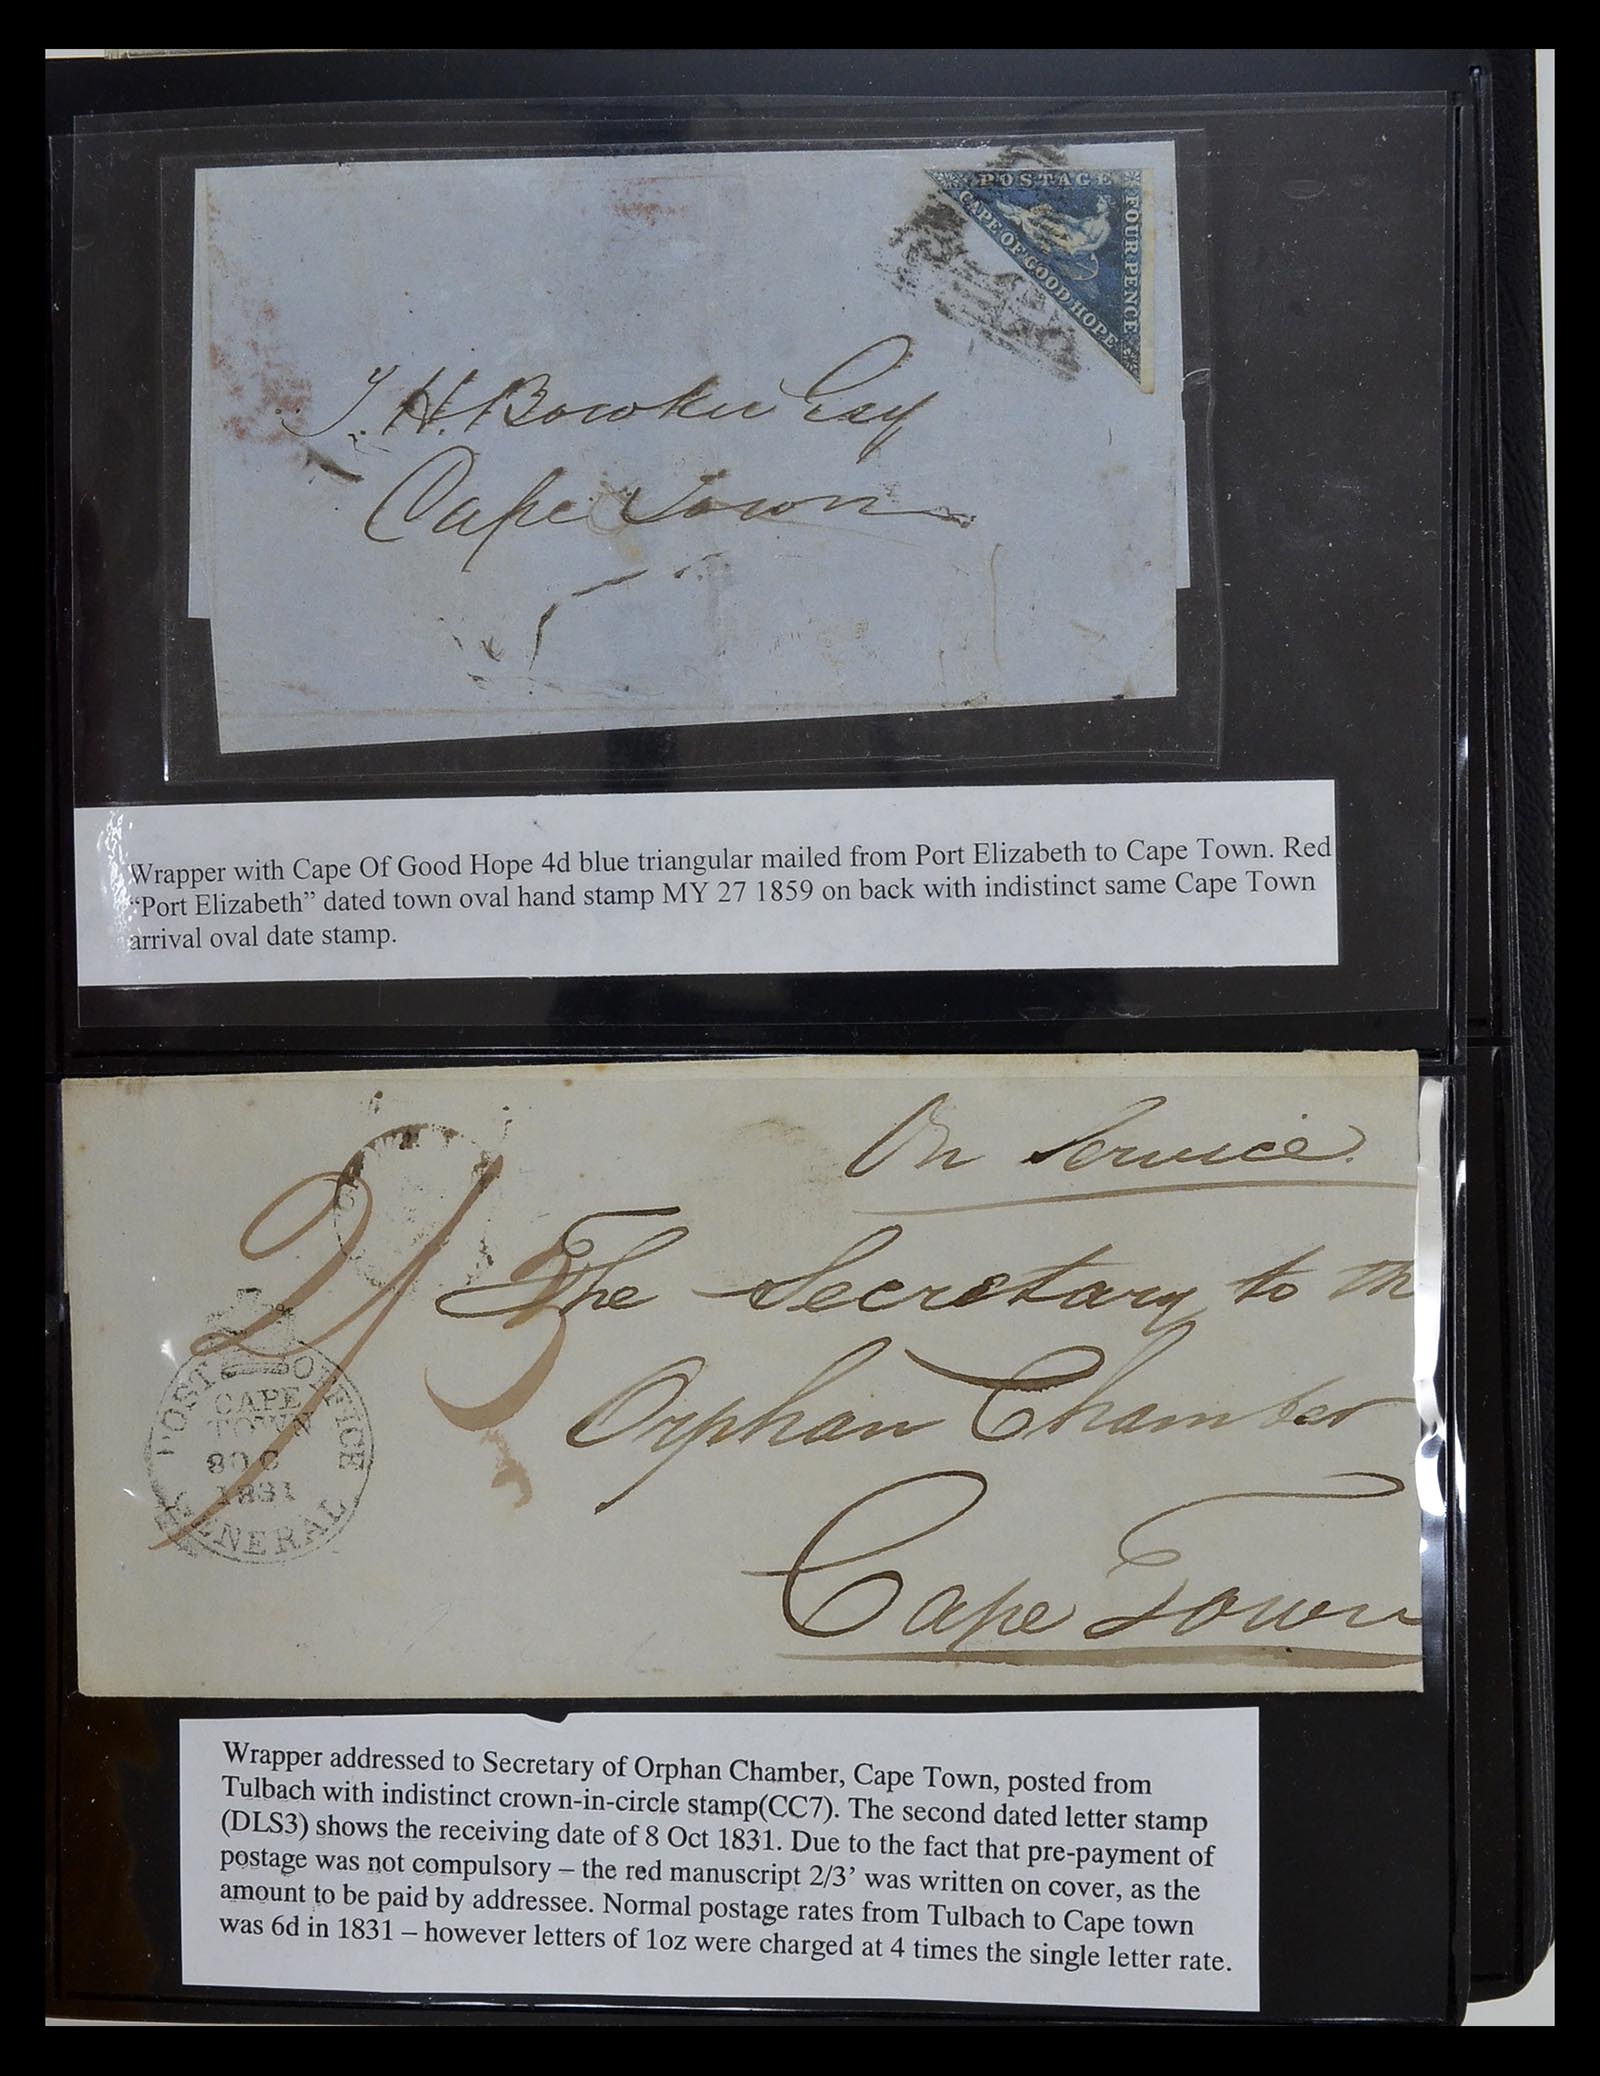 POSTAGE
FOUR PENCE
CAPE OF GOOD HOPE
J. H. Bowker Esq
Cape Town
Wrapper with Cape Of Good Hope 4d blue triangular mailed from Port Elizabeth to Cape Town. Red
“Port Elizabeth” dated town oval hand stamp MY 27 1859 on back with indistinct same Cape Town
arrival oval date stamp.
On Service
2/3
The Secretary to th
Orphan Chamber
Cape Town
POST OFFICE
CAPE
TOWN
8 OC
1831
GENERAL
Wrapper addressed to Secretary of Orphan Chamber, Cape Town, posted from
Tulbach with indistinct crown-in-circle stamp(CC7). The second dated letter stamp
(DLS3) shows the receiving date of 8 Oct 1831. Due to the fact that pre-payment of
postage was not compulsory – the red manuscript 2/3’ was written on cover, as the
amount to be paid by addressee. Normal postage rates from Tulbach to Cape town
was 6d in 1831 – however letters of 1oz were charged at 4 times the single letter rate.